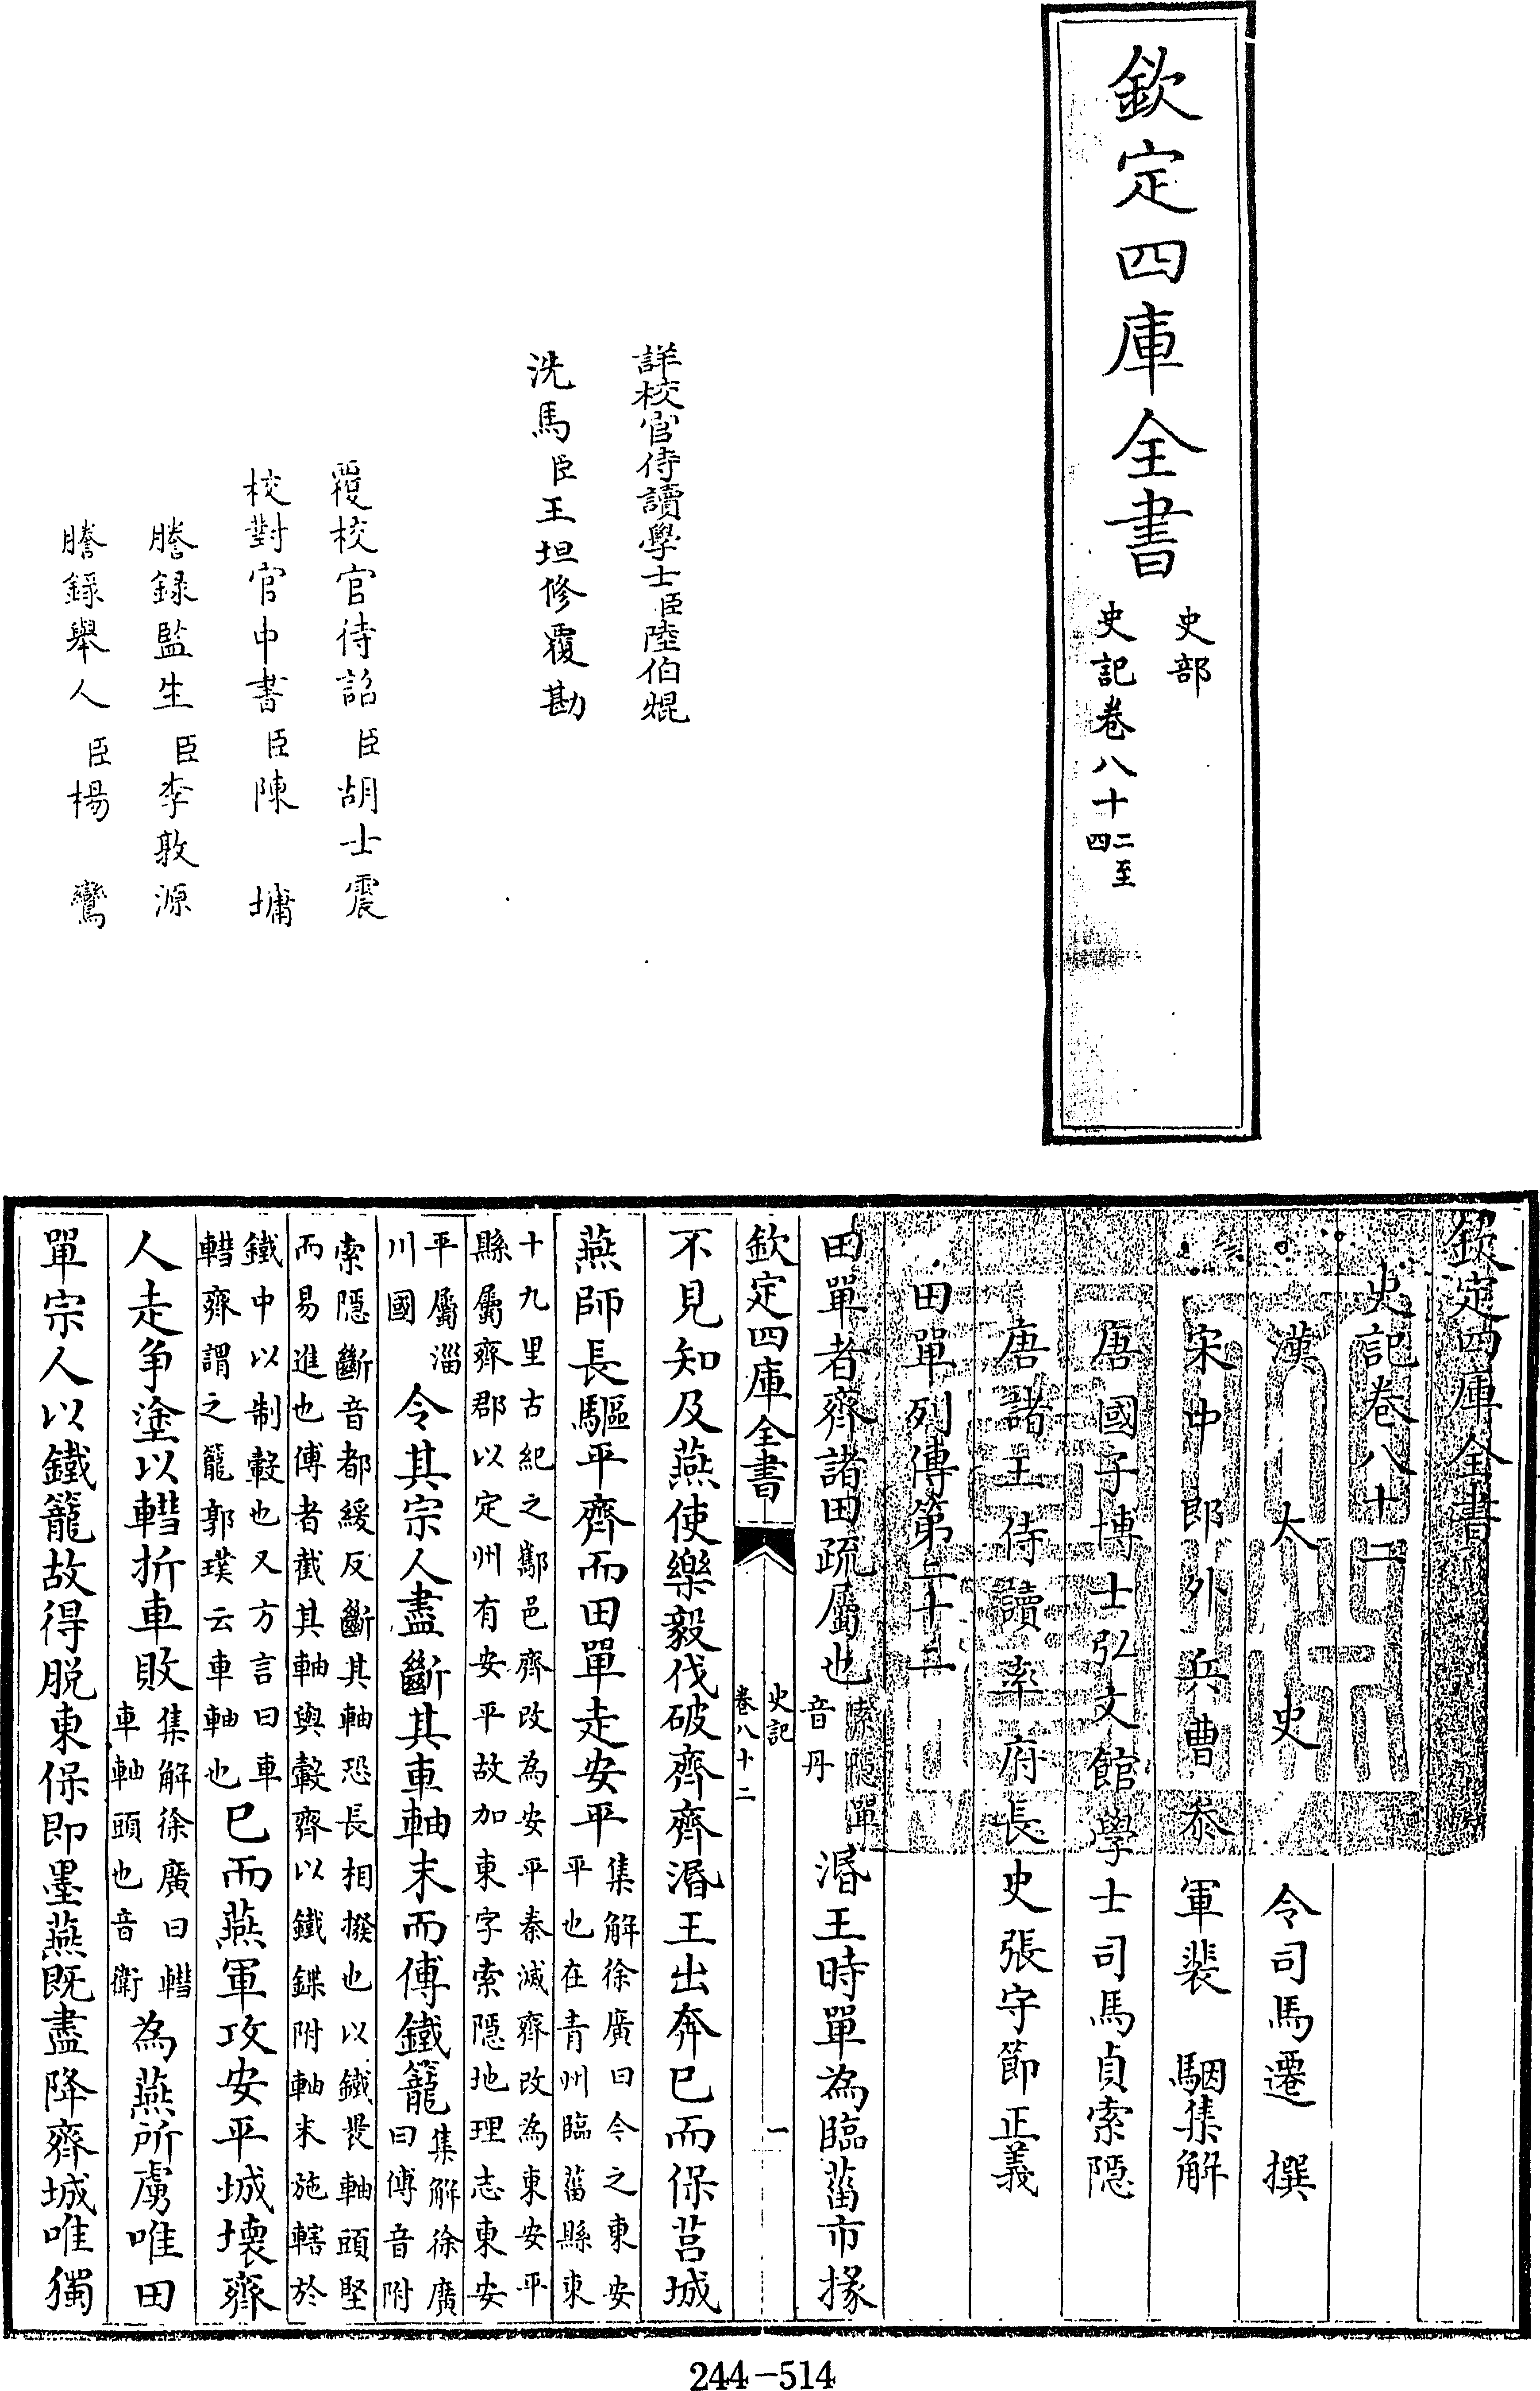 欽定四庫全書
史部
史記卷八十二至四
詳校官侍讀學士臣陸伯焜
洗馬臣王坦修覆勘
覆校官待詔臣胡士震
校對官中書臣陳墉
謄録監生臣李敦源
謄録舉人臣楊鸞
欽定四庫全書
史記卷八十二
漢太史令司馬遷撰
宋中郎外兵曹參軍裴駰集解
唐國子博士弘文館學士司馬貞索隱
唐諸王侍讀率府長史張守節正義
田單列傳第二十二
田單者齊諸田疏屬也索隱單音丹湣王時單為臨菑市掾
欽定四庫全書
史記
卷八十二
一
不見知及燕使樂毅伐破齊齊湣王出奔已而保莒城
燕師長驅平齊而田單走安平集解徐廣曰今之東安平也在青州臨菑縣東
十九里古紀之酅邑齊改為安平秦滅齊改為東安平
縣屬齊郡以定州有安平故加東字索隱地理志東安
平屬淄川國令其宗人盡斷其車軸末而傅鐵籠集解徐廣曰傅音附
索隱斷音都緩反斷其軸恐長相撥也以鐵裹軸頭堅
而易進也傅者截其軸與轂齊以鐵鍱附軸末施轄於
鐵中以制轂也又方言曰車
轊齊謂之籠郭璞云車軸也已而燕軍攻安平城壞齊
人走争塗以轊折車敗集解徐廣曰轊車軸頭也音衛為燕所虜唯田
單宗人以鐵籠故得脱東保即墨燕既盡降齊城唯獨
244-514